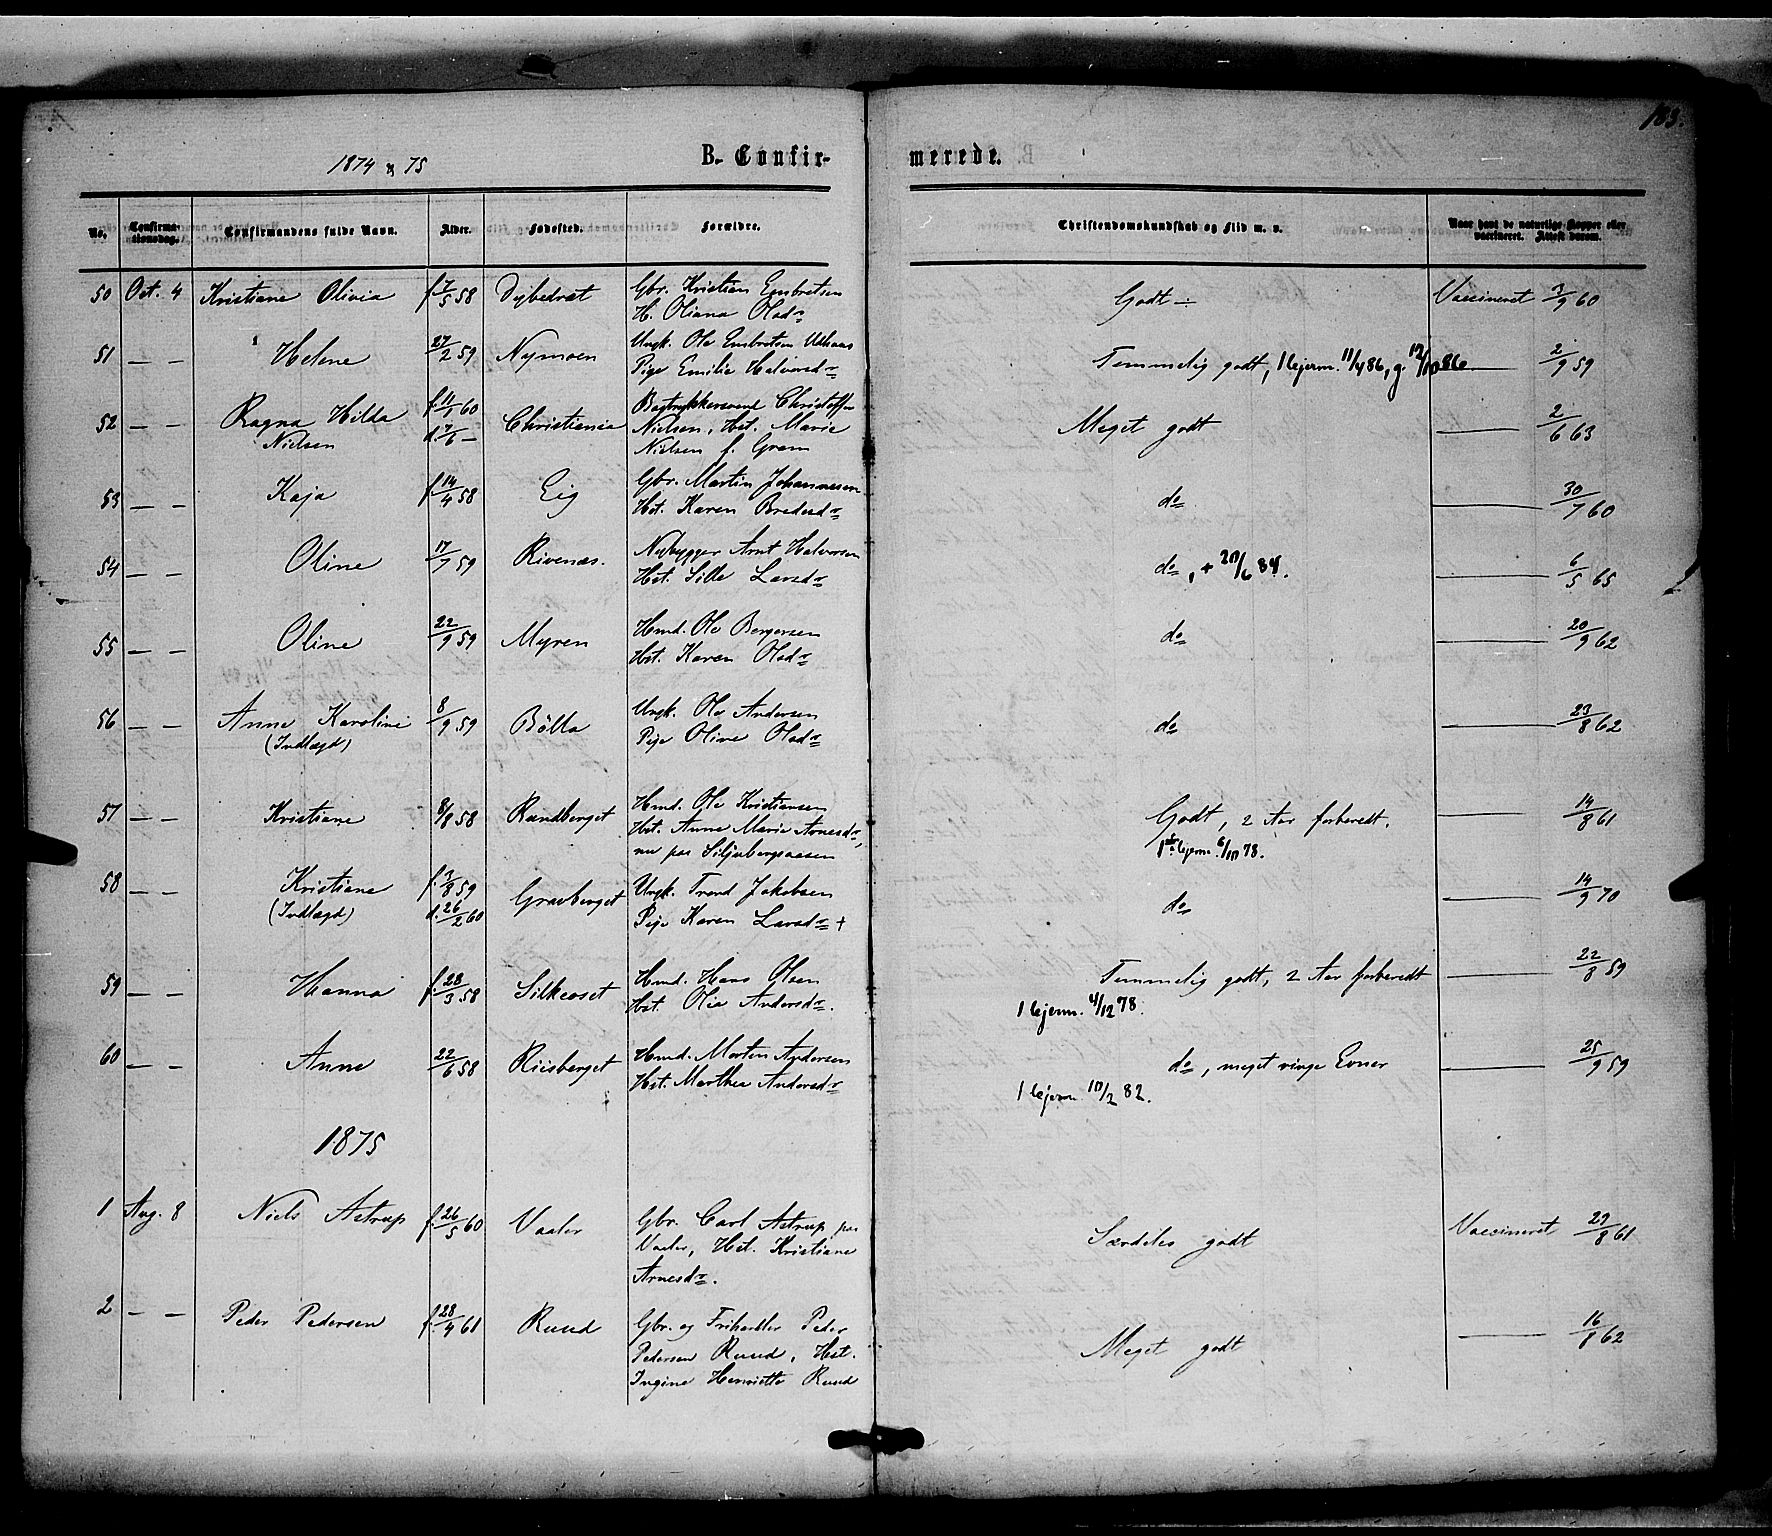 103.
1874 & 75
B. Confirmerede.
No. Confirmationsdag. Confirmandens fulde Navn. Alder. Fødested. Forældre. Christendomskundskab og Flid m. v. Naar havt de naturlige Kopper eller vaccineret. Attest derom.
50 Oct. 4 Kristiane Olivia f. 7/5 58 Dybedræt Gbr. Kristian Embretsen Godt ÷ Vaccineret 3/9 60
H. Oliana Olsdr
51 — — Helene 27/2 59 Nymoen Ungk. Ole Embretsen Temmelig godt, 1 lejerm. 11/4 86, g. 12/10 86 — 2/9 59
Pige Emilie Halvorsdr
52 — — Ragna Hilda f. 11/1 60 Christiania Bogtrykkersvend Christoffer Meget godt — 2/6 63
Nielsen d. 7/6 — Nielsen, Hst. Marie
Nielsen f. Gram
53 — — Kaja f. 14/4 58 Eig Gbr. Martin Johannesen do — 30/7 60
Hst. Karen Bredesdr
54 — — Oline 17/7 59 Rivenæs. Nybygger Arnt Halvorsen do, + 20/6 84. — 6/5 65
Hst. Sille Larsdr
55 — — Oline 22/9 59 Myren Hmd. Ole Bergersen do — 20/9 62
Hst. Karen Olsdr
56 — — Anne Karoline 8/9 59 Bölla Ungk. Ole Andersen do — 23/8 62
(Indlagd) Pige Oline Olsdr
57 — — Kristiane 8/8 58 Rundberget Hmd. Ole Kristiansen Godt, 2 Aar forberedt. — 14/8 61
Hst. Anne Marie Arnesdr, 1ste lejerm. 6/10 78.
nu paa Siljubergsaasen
58 — — Kristiane f. 3/8 59 Gravberget Ungk. Trond Jakobsen do — 14/9 70
(Indlagd) d. 26/2 60 Pige Karen Larsdr +
59 — — Hanna f. 28/3 58 Silkeaset Hmd. Hans Olsen Temmelig godt, 2 Aar forberedt — 22/8 59
Hst. Olia Andersdr. 1 lejerm. 4/12 78.
60 — — Anne 22/6 58 Riisberget Hmd. Morten Andersen do, meget ringe Evner — 25/9 59
Hst. Marthea Andersdr 1 lejerm. 10/2 82.
1875
1 Aug. 8 Niels Astrup f. 26/5 60 Vaaler Gbr. Carl Astrup paa Særdeles godt Vaccineret 29/8 61
Vaaler, Hst. Kristiane
Arnesdr.
2 — — Peder Pedersen f. 28/4 61 Ruud Gbr. og Frihandler Peder Meget godt — 16/8 62
Pedersen Ruud, Hst.
Ingine Henriette Ruud